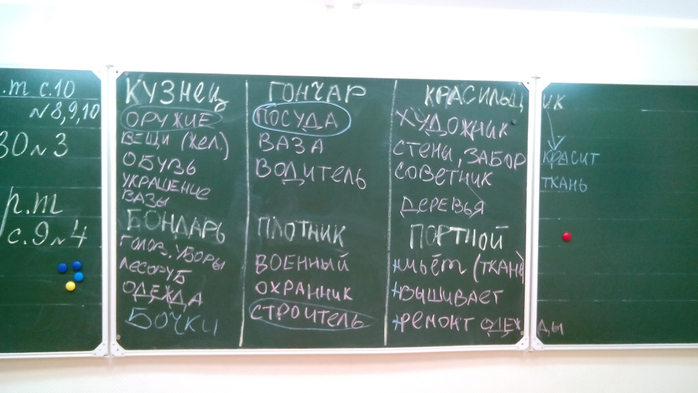 .т с.10
№8,9,10
30 №3
р.т
с.9 №4
КУЗНЕЦ
ОРУЖИЕ
ВЕЩИ (жел.)
ОБУВЬ
УКРАШЕНИЕ
ВАЗЫ
БОНДАРЬ
ГОЛОВ. УБОРЫ
ЛЕСОРУБ
ОДЕЖДА
БОЧКИ
ГОНЧАР
ПОСУДА
ВАЗА
ВОДИТЕЛЬ
ПЛОТНИК
ВОЕННЫЙ
ОХРАННИК
СТРОИТЕЛЬ
КРАСИЛЬЩИК
ХУДОЖНИК
СТЕНЫ, ЗАБОР
СОВЕТНИК
ДЕРЕВЬЯ
ПОРТНОЙ
шьёт (ТКАНЬ
ВЫШИВАЕТ
РЕМОНТ ОДЕЖДЫ
КРАСИТ
ТКАНЬ